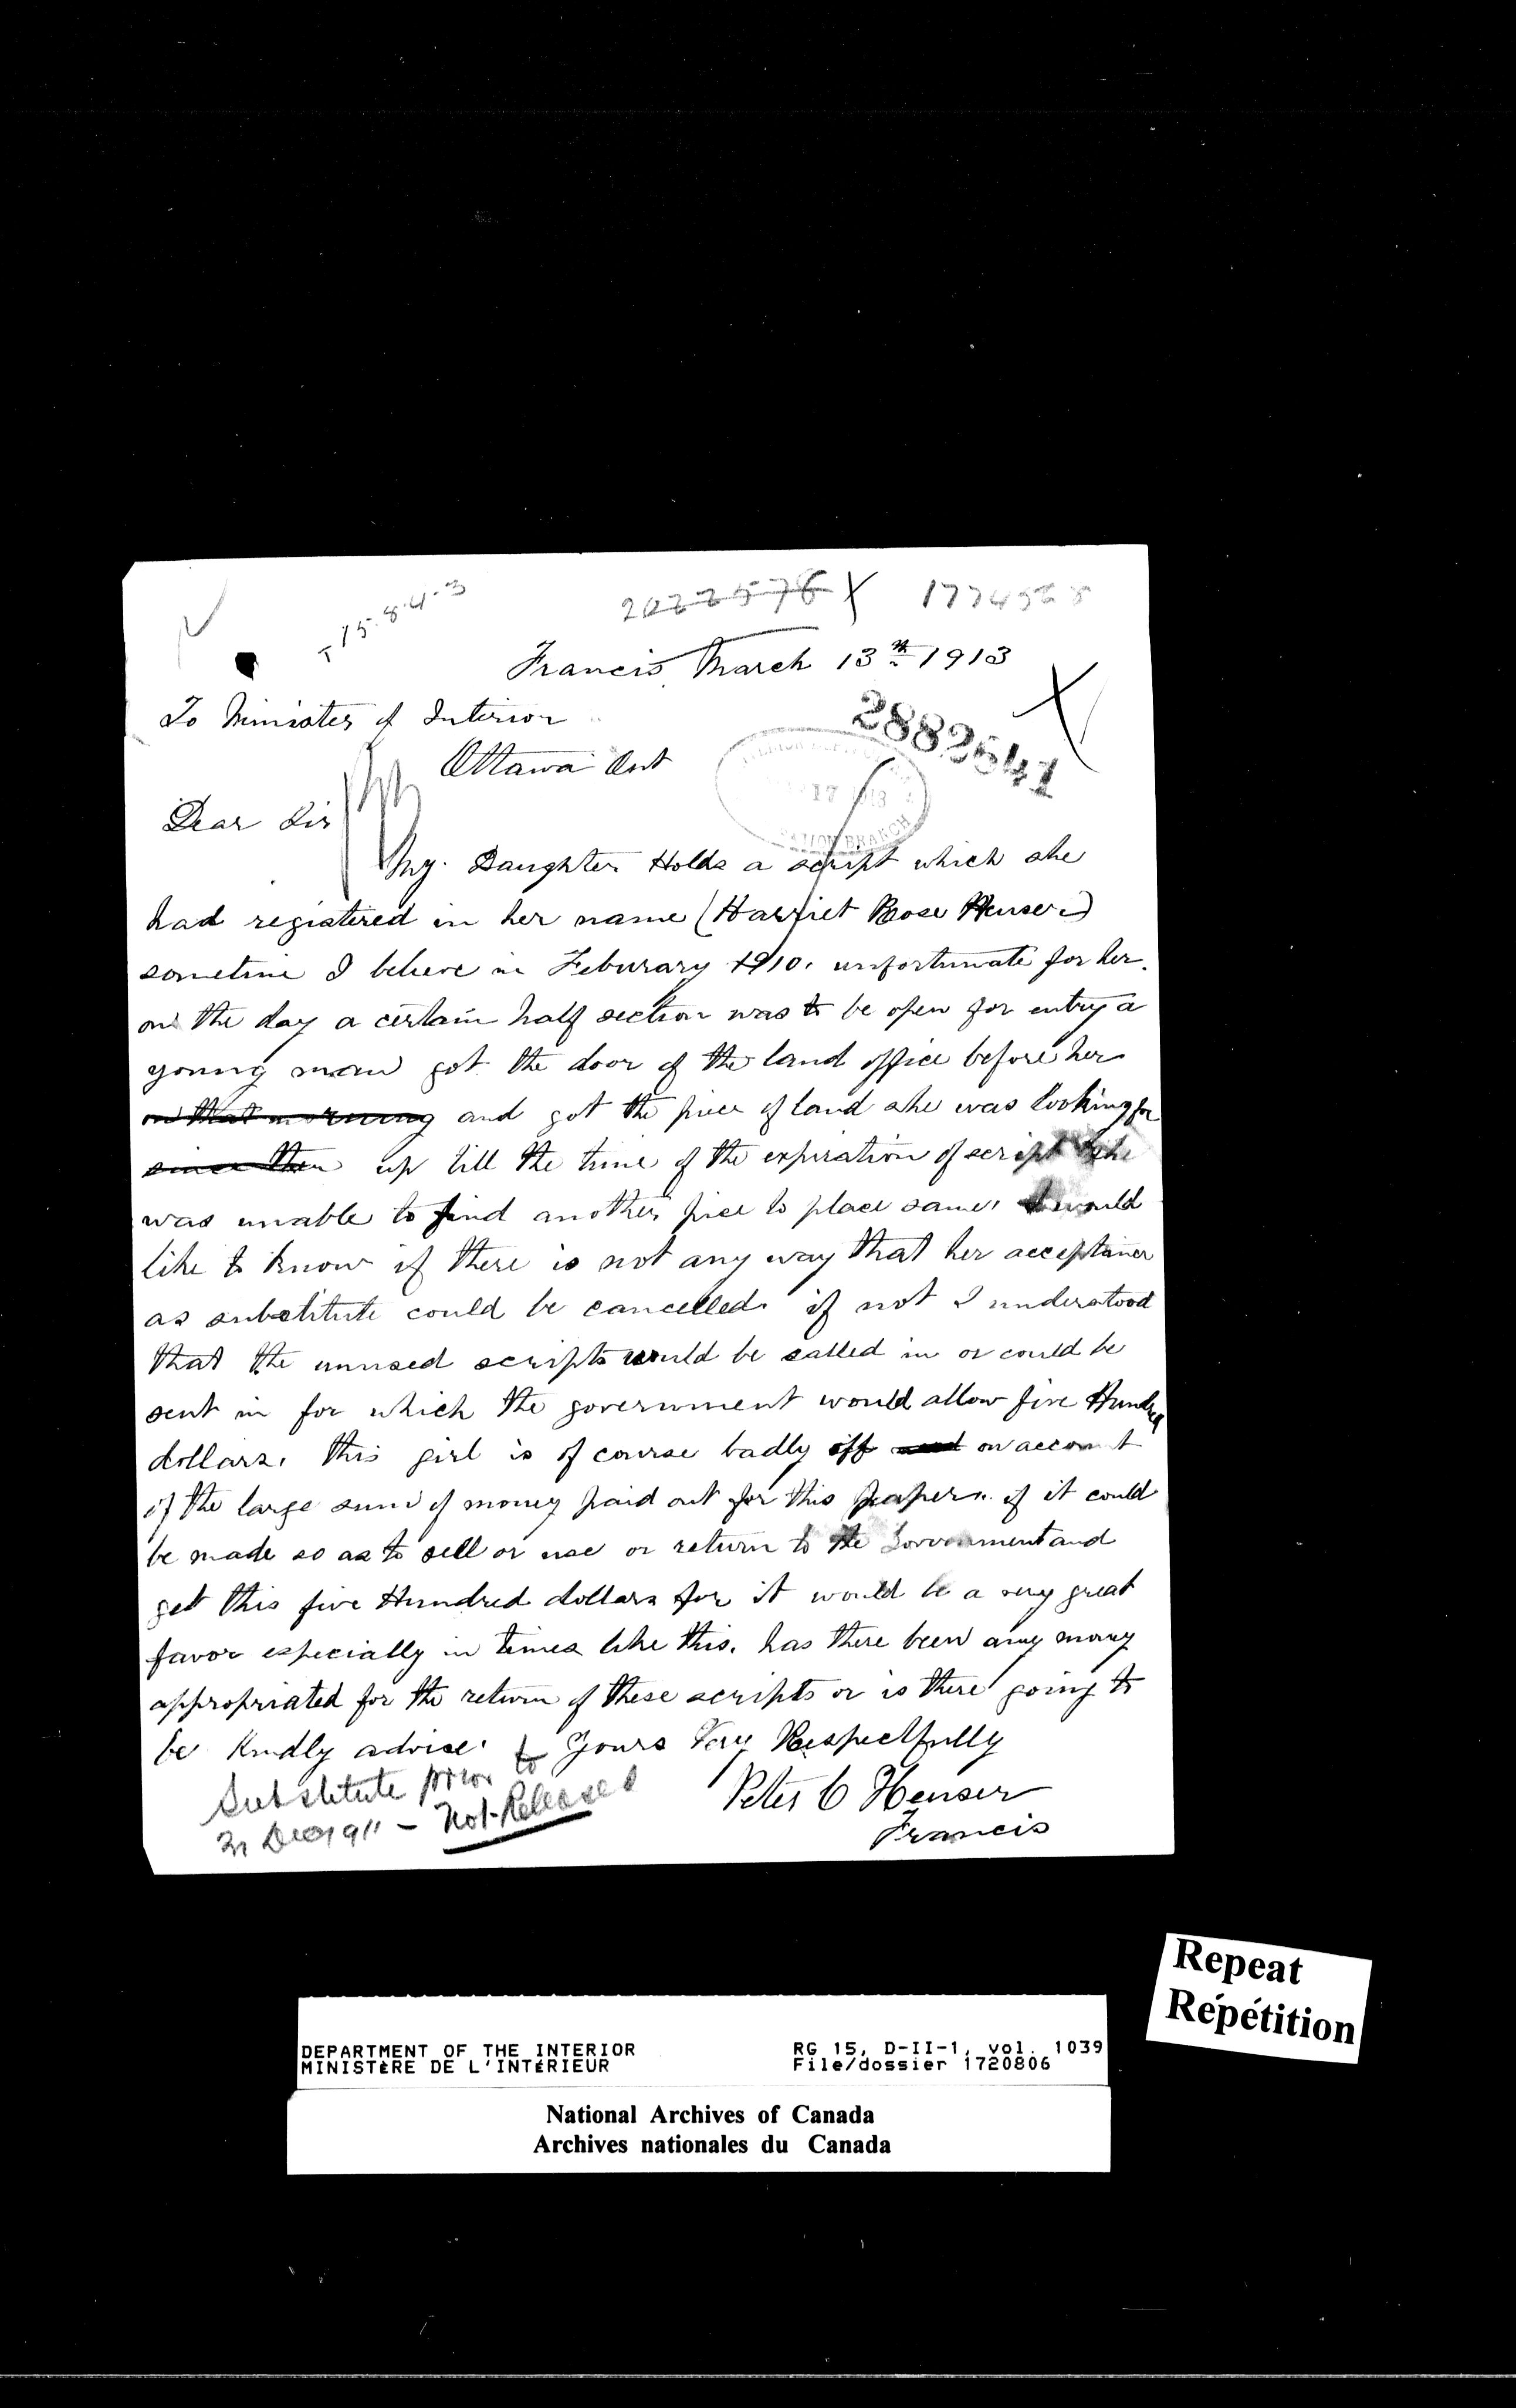 T 15.8.4-3
2022576 1774568
Francis, March 13th 1913
2882541
To Minister of Interior
Ottawa Ont
Dear Sir
My. Daughter Holds a script which she
had registered in her name (Harriet Rose Heuser)
sometime I beleve in Feburary 1910. unfortunate for her.
on the day a certain half section was to be open for entry a
young man got the door of the land office before her
on that morning and got the piece of land she was looking for
since then up till the time of the expiration of script she
was unable to find another piece to place same. I would
like to know if there is not any way that her acceptance
as substitute could be cancelled. if not I understood
that the unused scripts would be called in or could be
sent in for which the government would allow five Hundred
dollars. this girl is of course badly off on account
of the large sum of money paid out for this paper. if it could
be made so as to sell or use or return to the Government and
get this five Hundred dollars for it would be a very great
favor especially in times like this. has there been any money
appropriated for the return of these scripts or is there going to
be Kindly advise. Yours Very Respectfully
Peter C Heuser
Francis
Substitute prior to
31 Dec 1911 - Not Released
Repeat
Répétition
DEPARTMENT OF THE INTERIOR RG 15, D-II-1, vol. 1039
MINISTÈRE DE L'INTÉRIEUR File/dossier 1720806
National Archives of Canada
Archives nationales du Canada